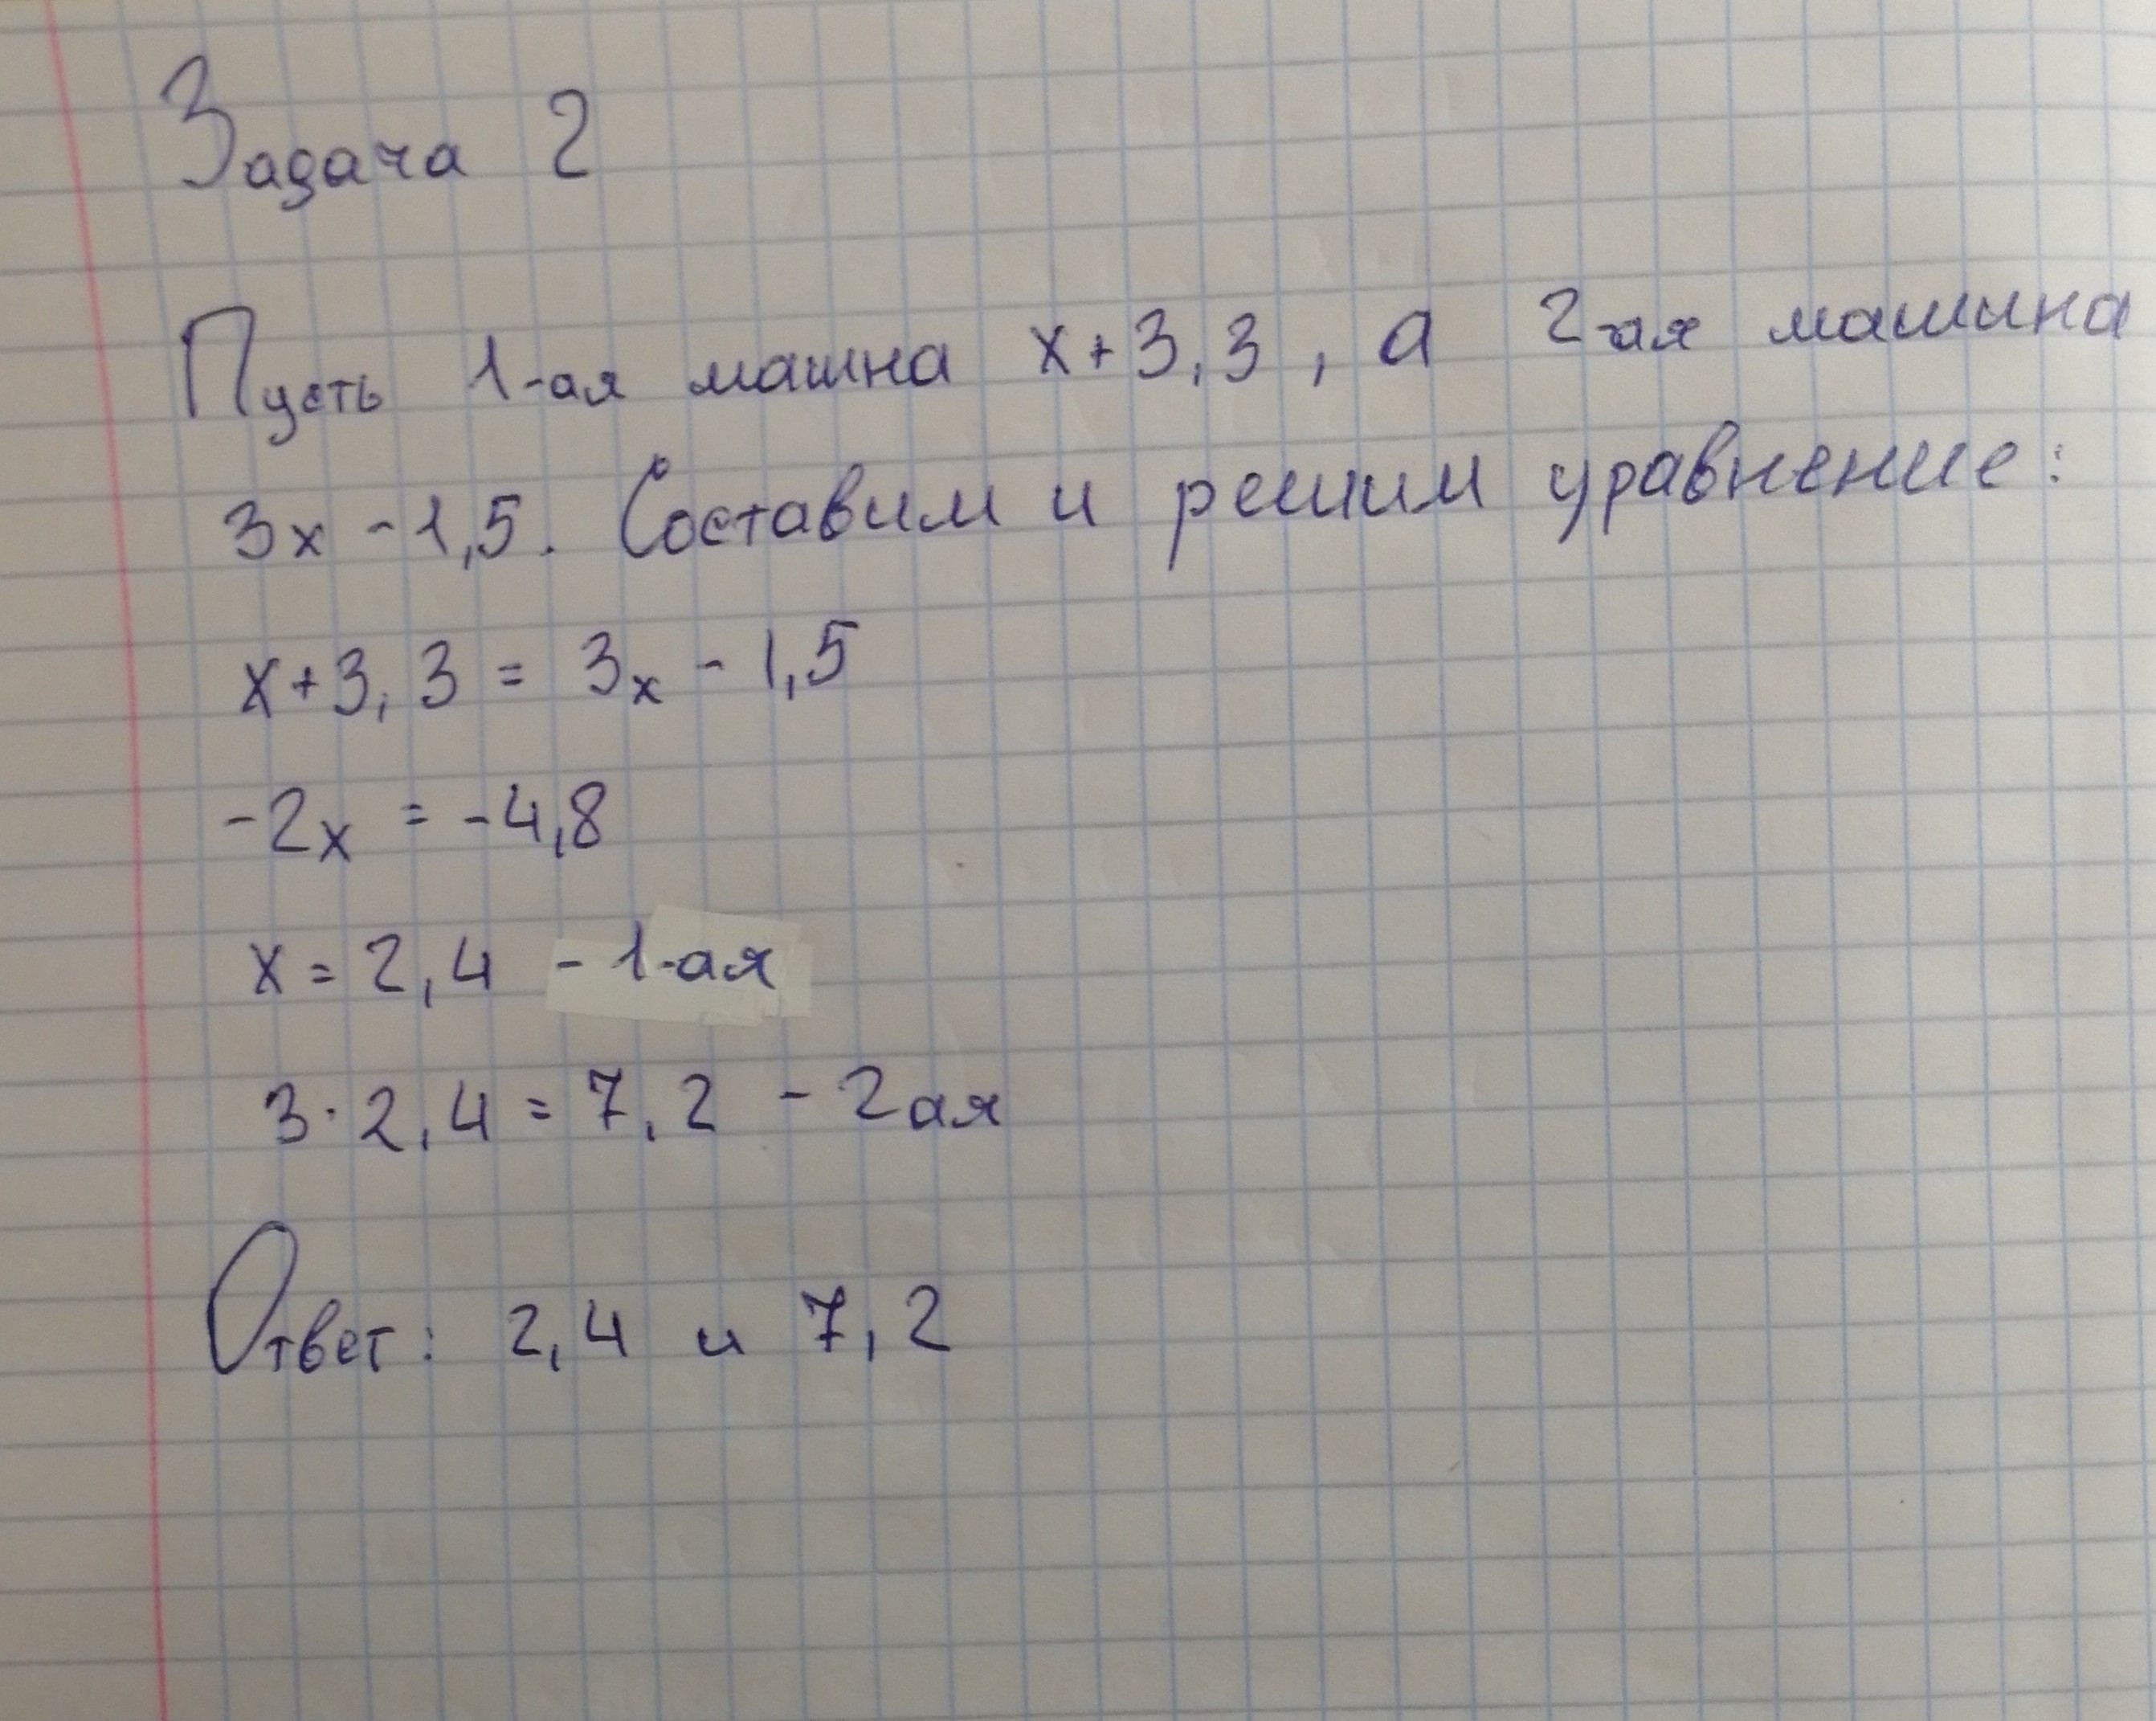 Задача 2
Пусть 1-ая машна x+3,3, а 2-ая машина
3x - 1,5. Составим и решим уравнение:
x+3,3 = 3x - 1,5
-2x = -4,8
x = 2,4 - 1-ая
3·2,4 = 7,2 - 2ая
Ответ: 2,4 и 7,2